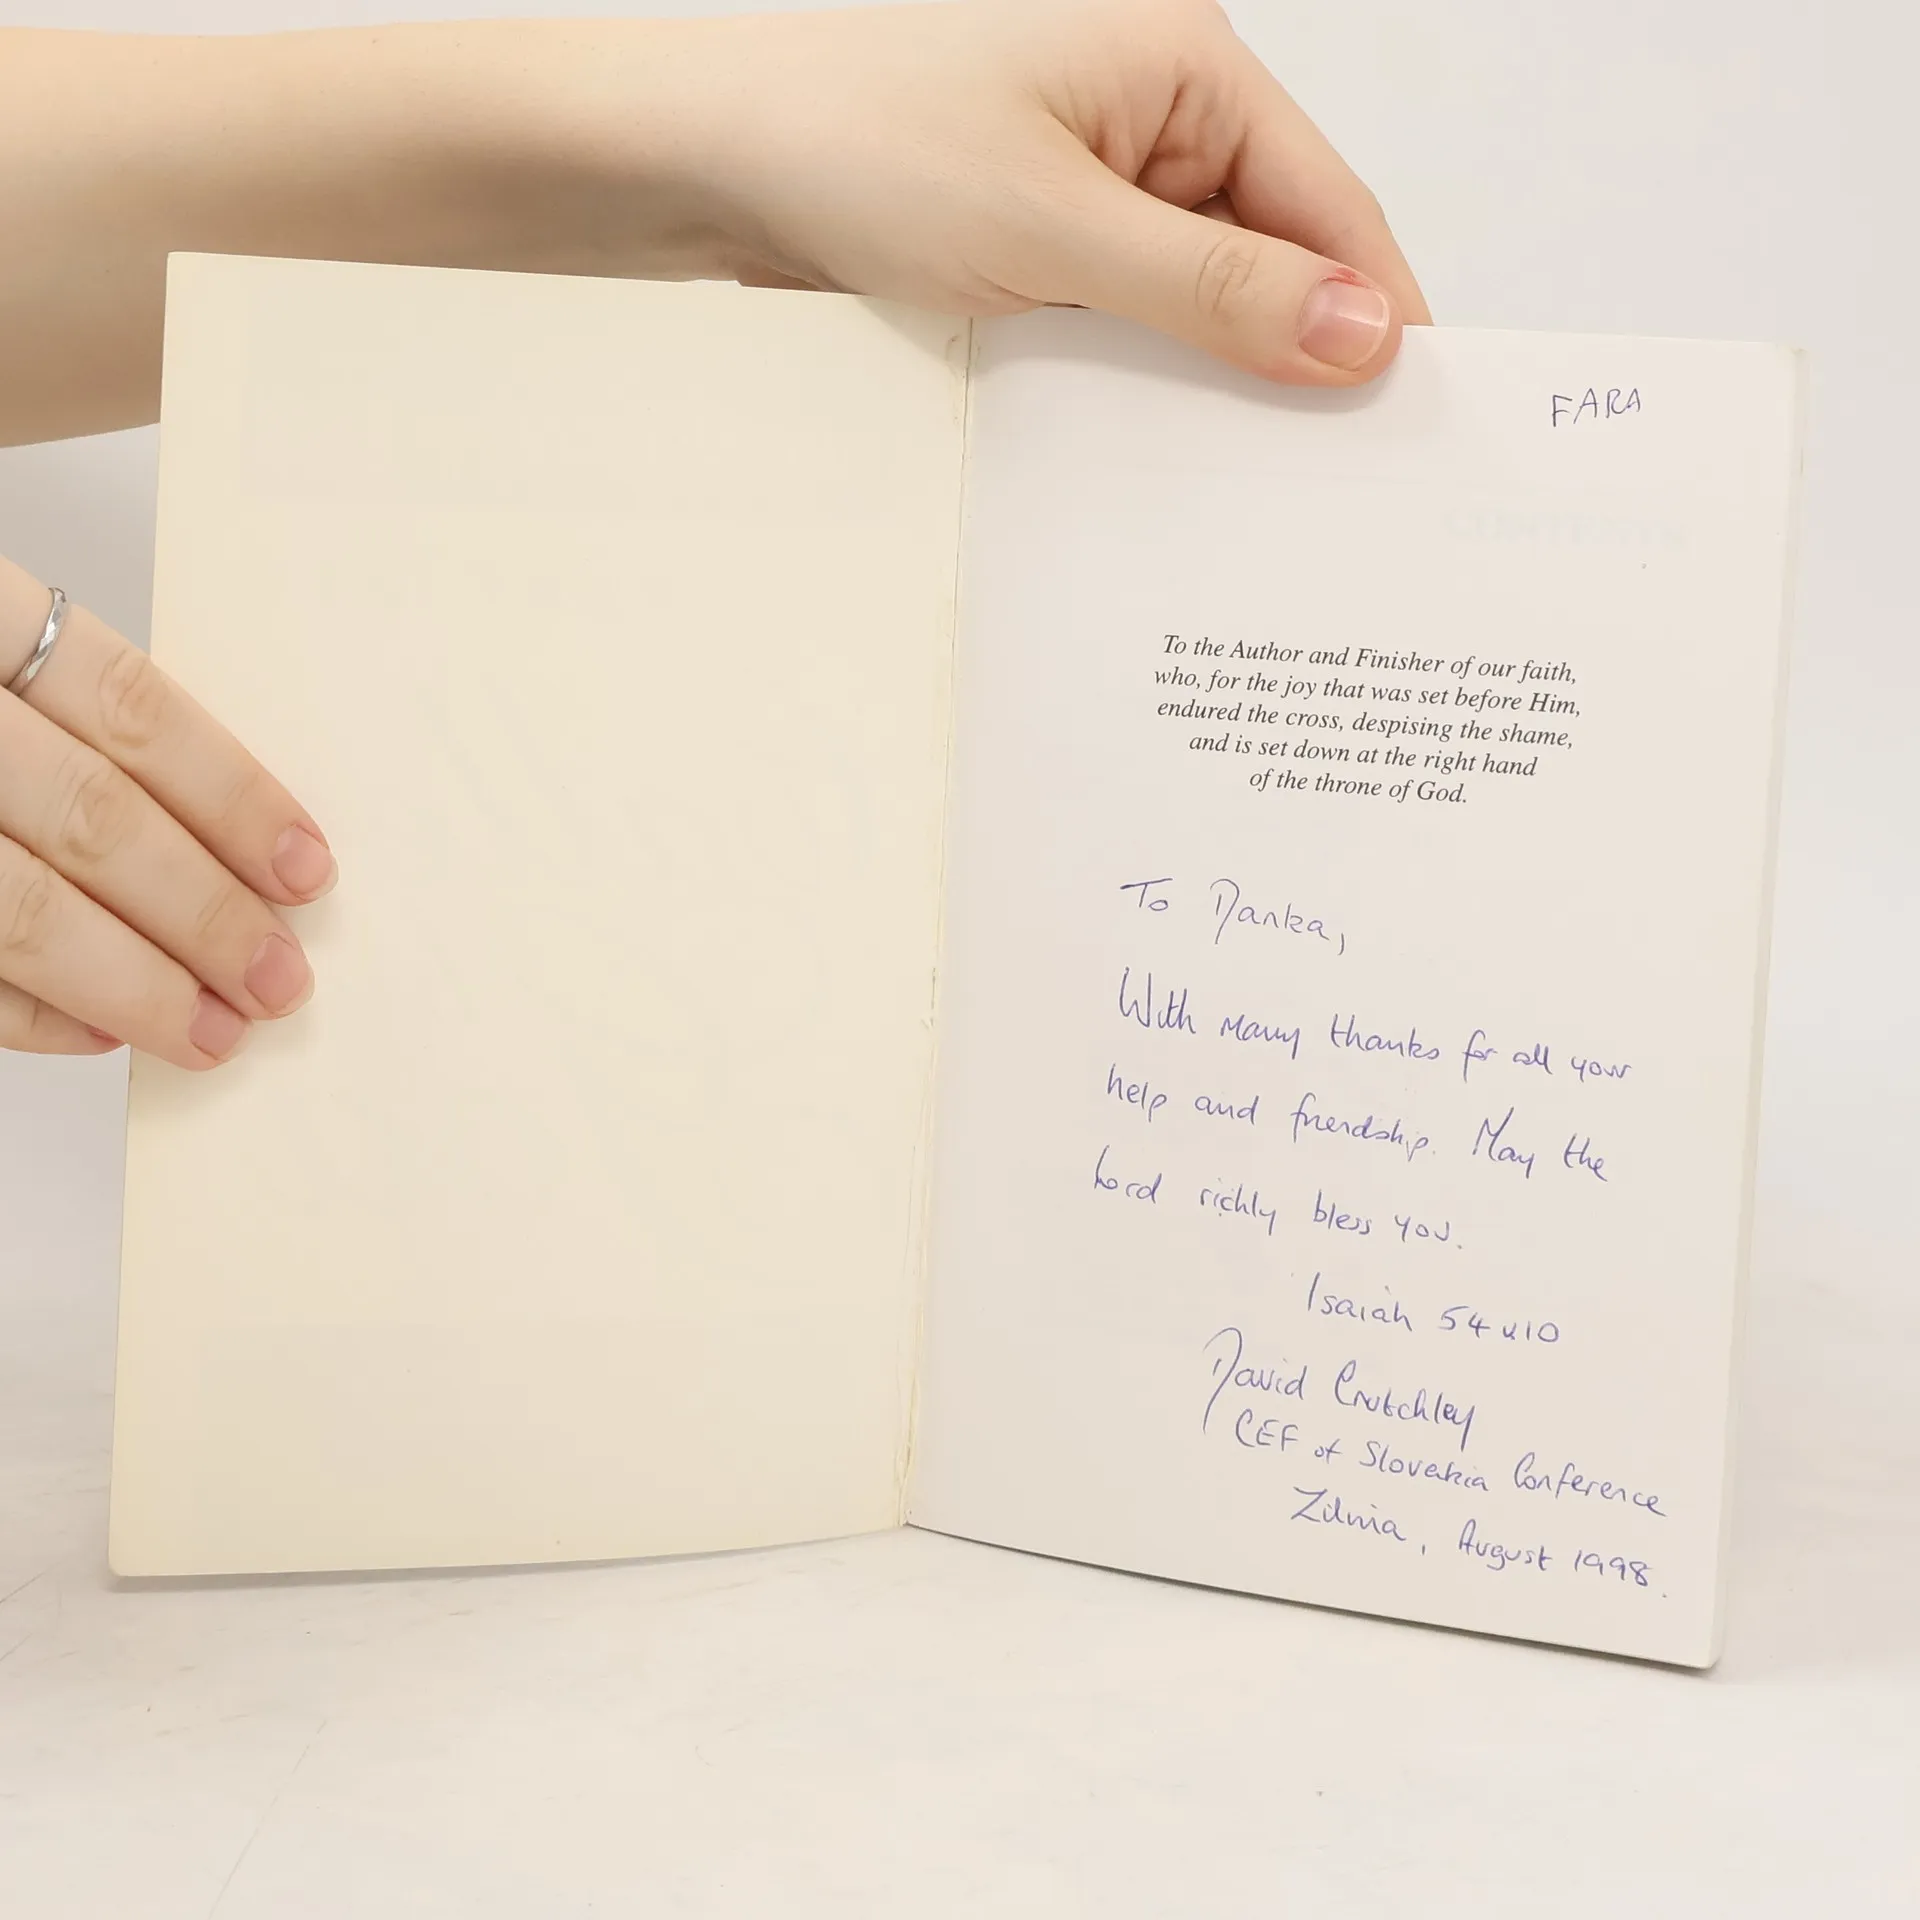 FARA
To the Author and Finisher of our faith,
who, for the joy that was set before Him,
endured the cross, despising the shame,
and is set down at the right hand
of the throne of God.
To Danka,
With many thanks for all your
help and friendship. May the
Lord richly bless you.
Isaiah 54 v10
David Crutchley
CEF of Slovakia Conference
Zilinia, August 1998.